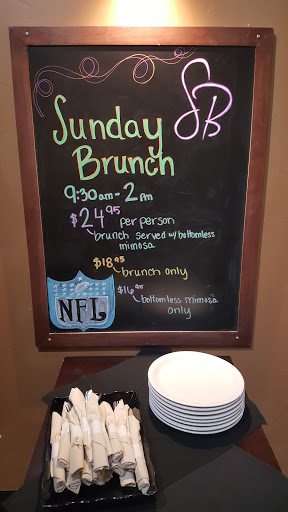 SB
Sunday
Brunch
9:30am - 2pm
$24.95 per person
brunch served w/ bottomless
mimosa
$18.95 brunch only
$16.95 bottomless mimosa
only
NFL